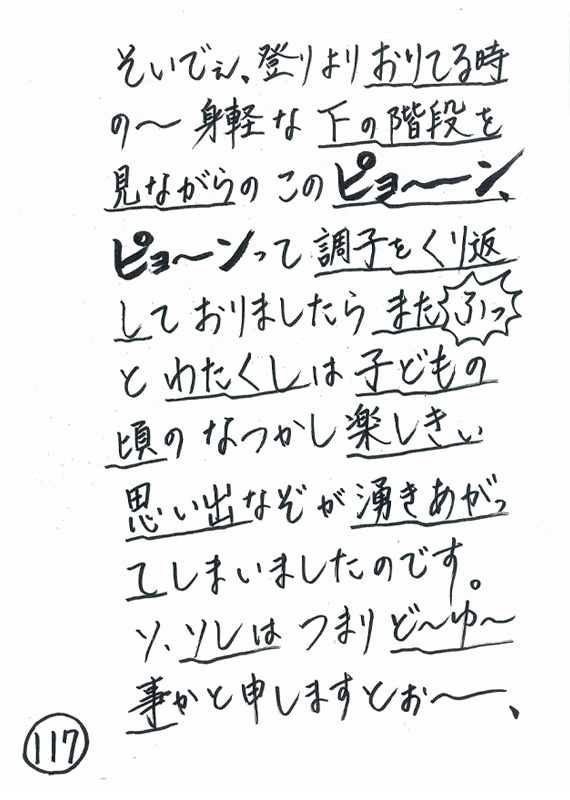 そいでぇ、登りよりおりてる時
の〜身軽な下の階段を
見ながらのこのピョ〜〜ン、
ピョ〜ンって調子をくり返
しておりましたらまたふっ
とわたくしは子どもの
頃のなつかし楽しきぃ
思い出なぞが湧きあがっ
てしまいましたのです。
ソ、ソレはつまりど〜ゆ〜
事かと申しますとぉ〜、
117